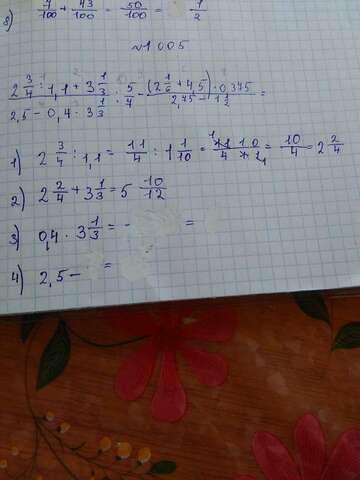 8) 7/100 + 43/100 = 50/100 = 1/2
~1005
(2 3/4 : 1,1 + 3 1/3) / (2,5 - 0,4 · 3 1/3) : 5/7 - ((2 1/6 + 4,5) · 0,375) / (2,75 - 1 1/2) =
1) 2 3/4 : 1,1 = 11/4 : 1 1/10 = 11/4 · 10/11 = 10/4 = 2 2/4
2) 2 2/4 + 3 1/3 = 5 10/12
3) 0,4 · 3 1/3 = - =
4) 2,5 - =